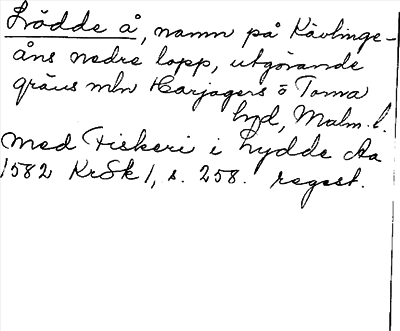 Lödde å, namn på Kävlinge-
åns nedre lopp, utgörande
gräns mln Harjagers o Torna
hd, Malm. l.
med Fiskeri i Lydde Aa
1582 KrSk 1, s. 258. regest.